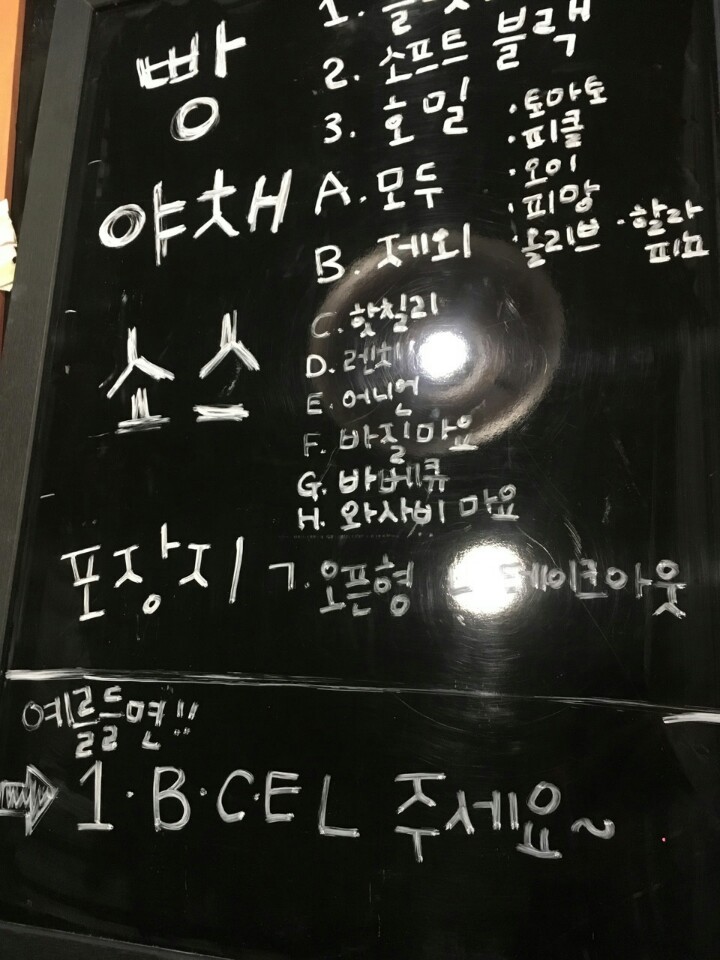 빵
1.
2. 소프트 블랙
3. 호밀
야채
A. 모두
B. 제외
·토마토
·피클
·오이
·피망
·올리브 ·할라피뇨
소스
C. 핫칠리
D. 렌치
E. 어니언
F. 바질마요
G. 바베큐
H. 와사비 마요
포장지 ㄱ. 오픈형 테이크아웃
예를들면!!
1·B·C·E L 주세요~